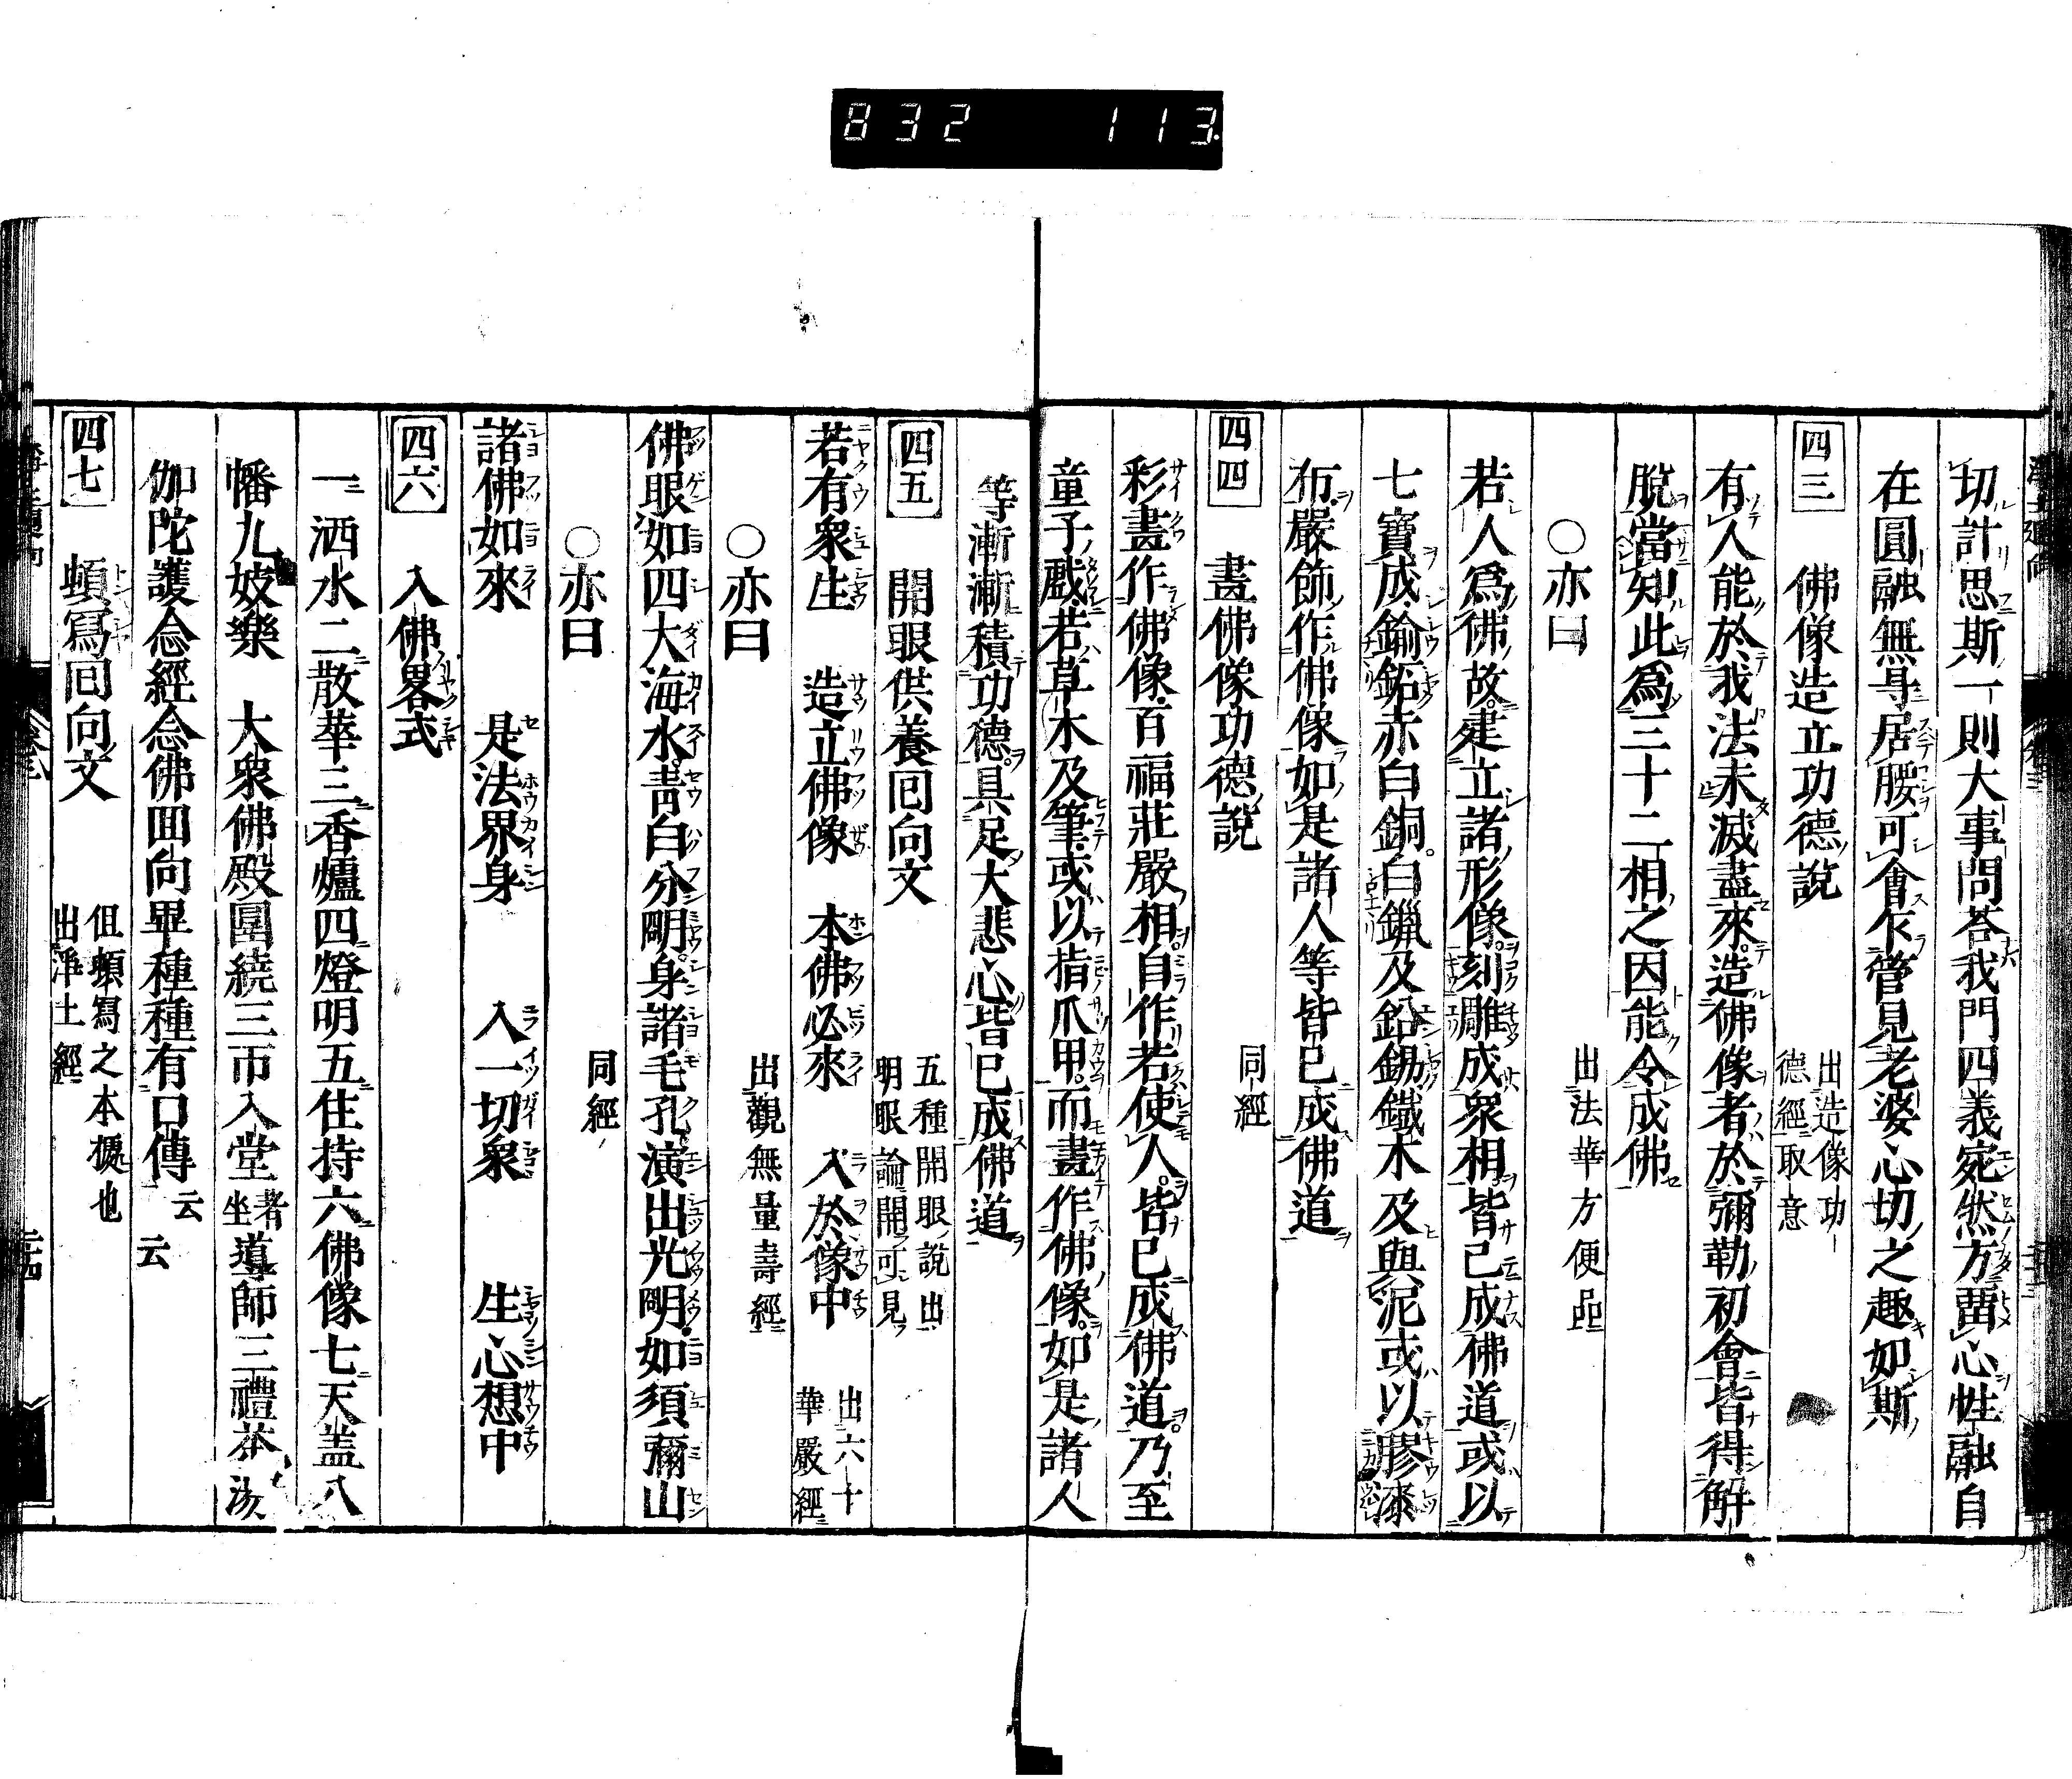 832 113
切計思斯一則大事問答我門四義宛然方畱心性融自
在圓融無㝵居腰可會乍管見老婆心切之趣如斯
四三 佛像造立功德說 出造像功德經取意
有人能於我法未滅盡來造佛像者於彌勒初會皆得解
脫當知此爲三十二相之因能令成佛
○亦曰 出法華方便品
若人爲佛故建立諸形像刻雕成衆相皆已成佛道或以
七寶成鍮鉐赤白銅白鑞及鉛錫鐵木及與泥或以膠漆
布嚴飾作佛像如是諸人等皆已成佛道
四四 畫佛像功德說 同經
彩畫作佛像百福莊嚴相自作若使人皆已成佛道乃至
童子戲若草木及筆或以指爪甲而畫作佛像如是諸人
等漸漸積功德具足大悲心皆已成佛道
四五 開眼供養囘向文 五種開眼說出明眼論開可見
若有衆生 造立佛像 本佛必來 入於像中 出六十華嚴經
○亦曰 出觀無量壽經
佛眼如四大海水靑白分明身諸毛孔演出光明如須彌山
○亦曰 同經
諸佛如來 是法界身 入一切衆 生心想中
四六 入佛畧式
一洒水二散華三香爐四燈明五住持六佛像七天盖八
幡九妓樂 大衆佛殿圍繞三帀入堂者坐導師三禮茶湯
伽陀護念經念佛囬向畢種種有口傳云云
四七 頓寫囘向文 但頓寫之本據也出淨土經